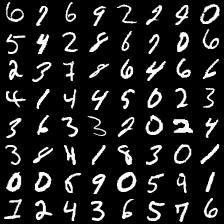 6 7 6 9 2 2 4 0
5 4 2 8 6 7 0 6
2 3 7 8 6 4 6 6
4 1 4 4 5 0 2 3
3 6 3 3 2 0 2 4
3 8 4 1 8 3 0 1
0 0 6 9 0 5 9 1
7 2 4 3 6 5 7 6